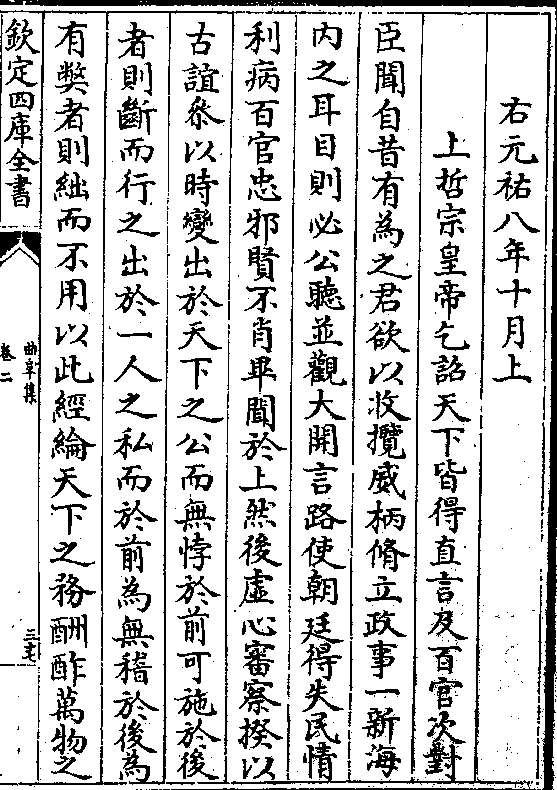 右元祐八年十月上
上哲宗皇帝乞詔天下皆得直言及百官次對
臣聞自昔有為之君欲以收攬威柄脩立政事一新海
内之耳目則必公聽並觀大開言路使朝廷得失民情
利病百官忠邪賢不肖畢聞於上然後虛心審察揆以
古誼叅以時變出於天下之公而無悖於前可施於後
者則斷而行之出於一人之私而於前為無稽於後為
有弊者則絀而不用以此經綸天下之務酬酢萬物之
欽定四庫全書
曲阜集
卷二